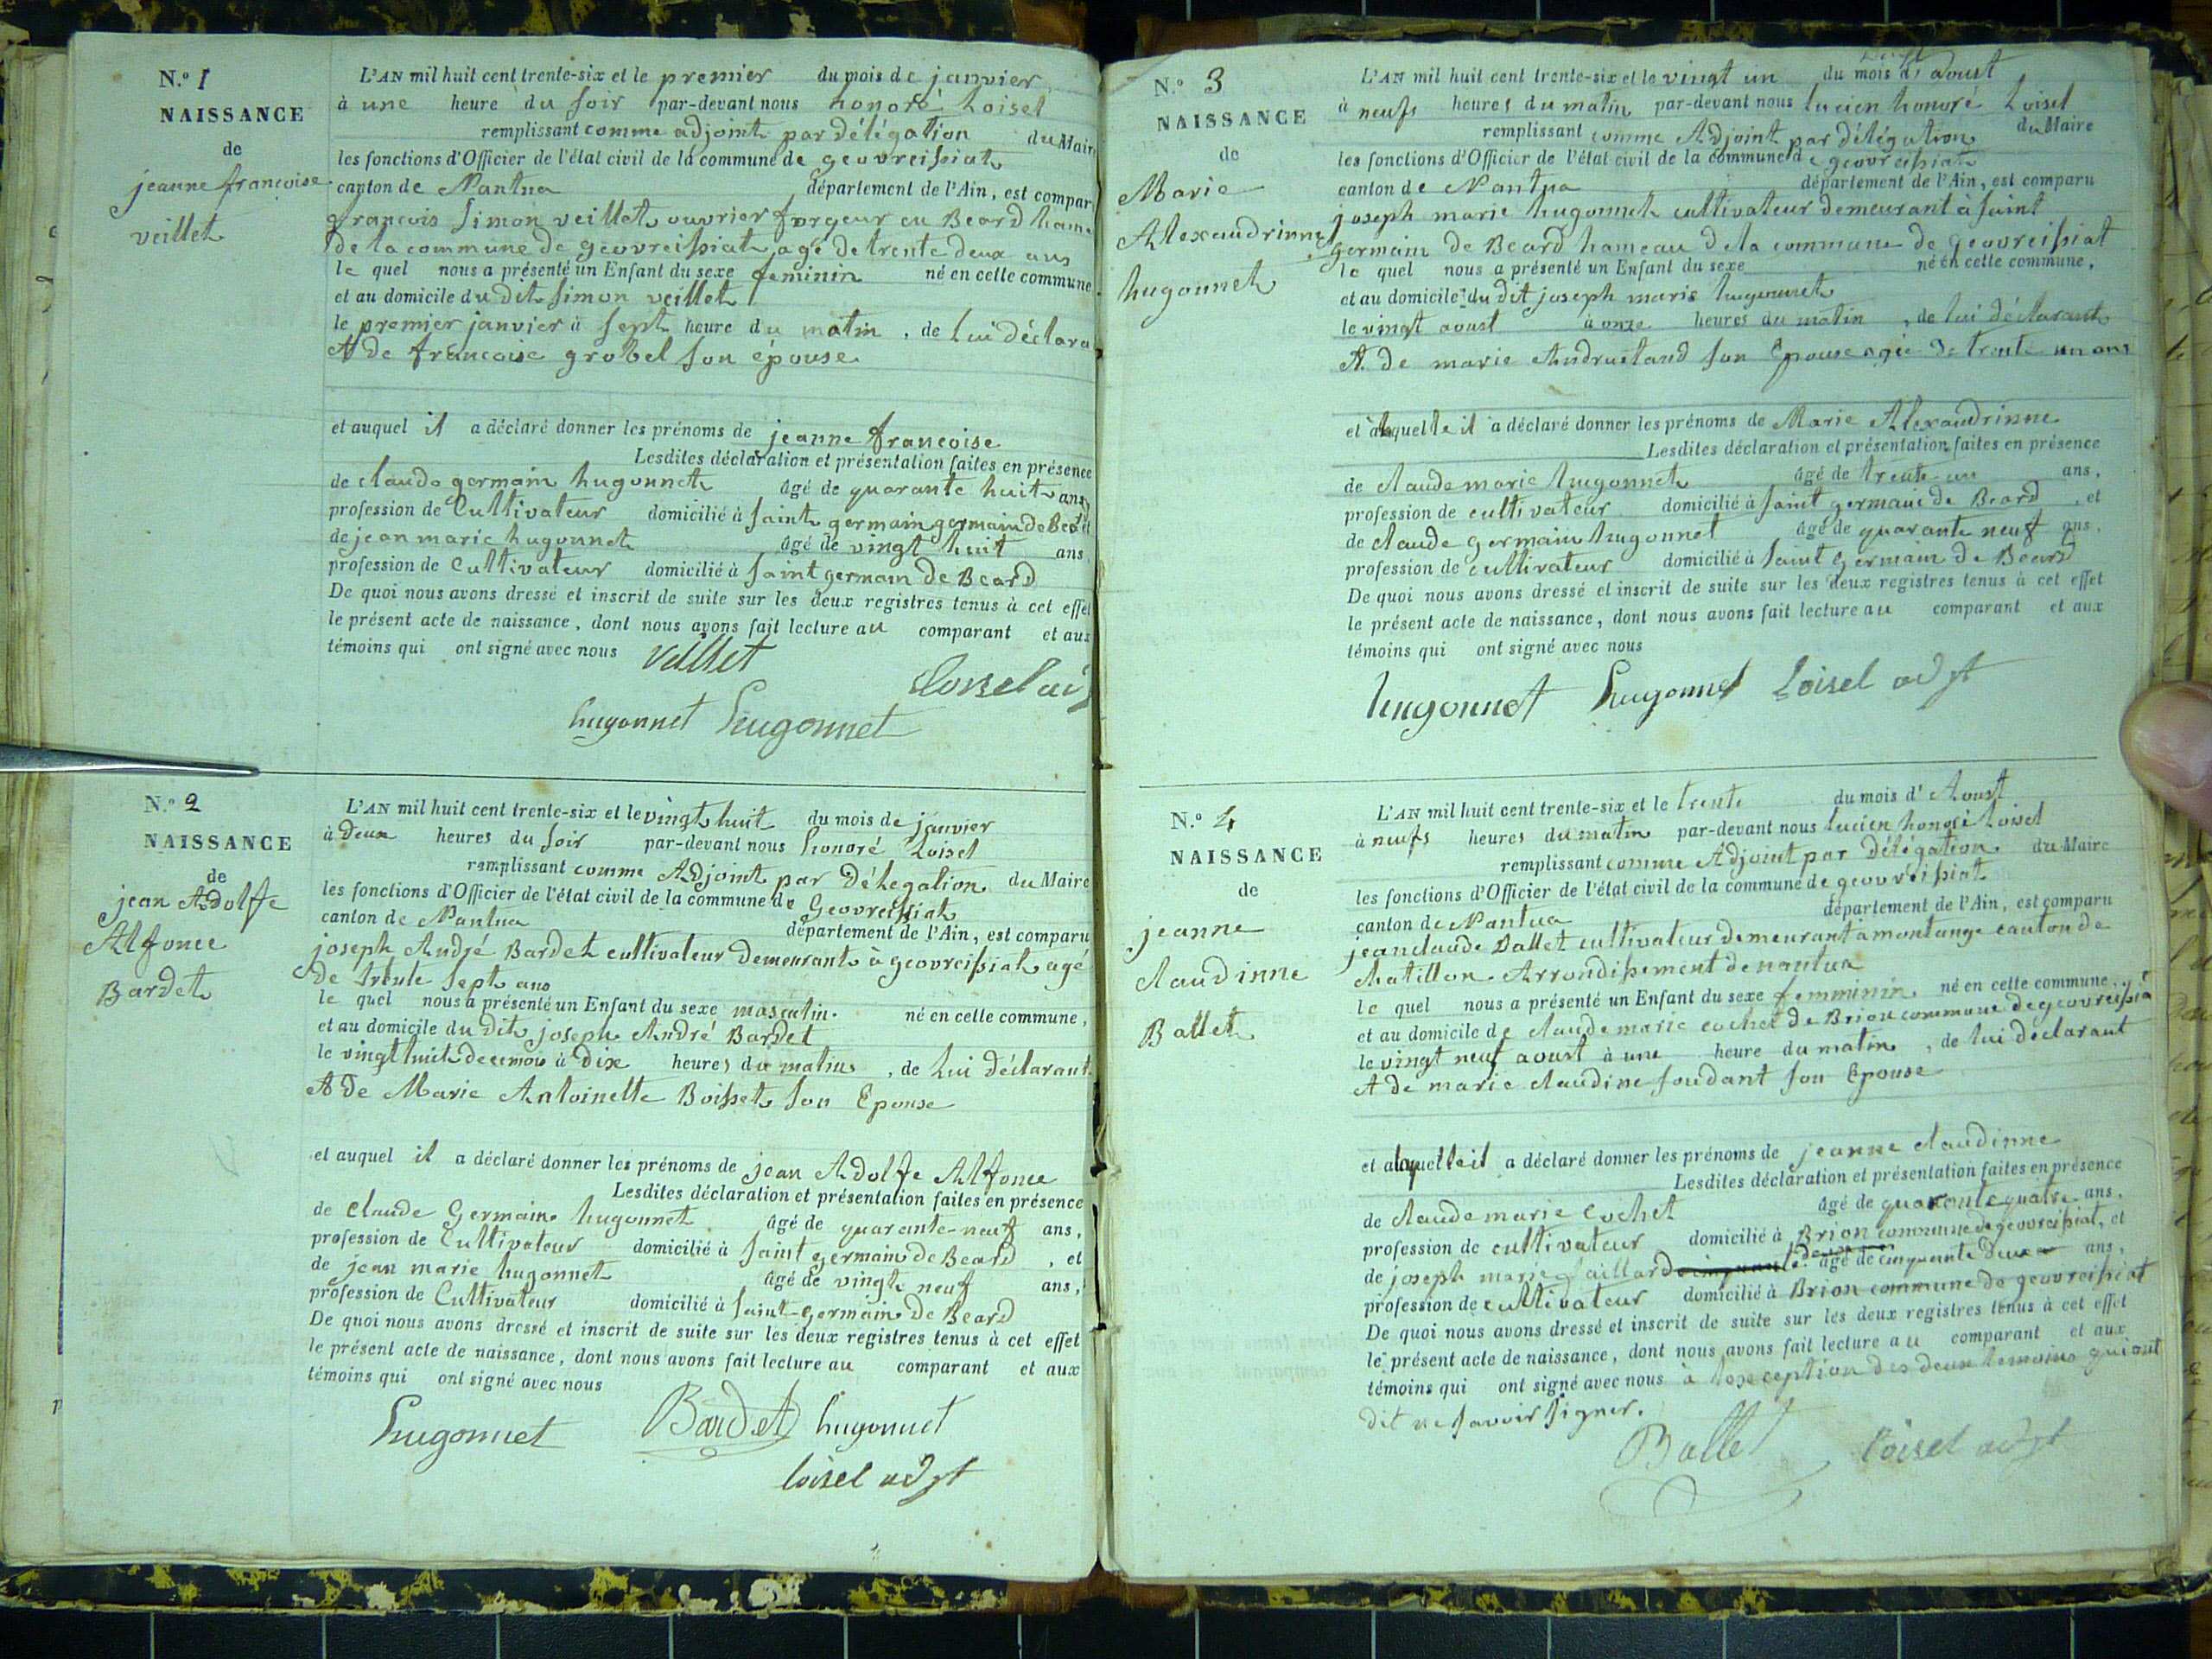 N.º 1
NAISSANCE
de
jeanne françoise
veillet
L'AN mil huit cent trente-six et le premier du mois de janvier
à une heure du soir par-devant nous honoré Loisel
remplissant comme adjoint par délégation du Maire
les fonctions d'Officier de l'état civil de la commune de geovreissiat
canton de Nantua département de l'Ain, est compar
françois Simon veillet ouvrier forgeur en Beard hame
de la commune de geovreissiat agé de trente deux ans
le quel nous a présenté un Enfant du sexe feminin né en cette commune
et au domicile du dit Simon veillet
le premier janvier à sept heure du matin, de lui déclara
et de francoise grobel son épouse
et auquel il a déclaré donner les prénoms de jeanne francoise
Lesdites déclaration et présentation faites en présence
de claude germain hugonnet âgé de quarante huit ans,
profession de Cultivateur domicilié à saint germain germain de Beard et
de jean marie hugonnet âgé de vingt huit ans
profession de Cultivateur domicilié à saint germain de Beard
De quoi nous avons dressé et inscrit de suite sur les deux registres tenus à cet effet
le présent acte de naissance, dont nous avons fait lecture au comparant et aux
témoins qui ont signé avec nous Veillet
Loisel adj
hugonnet hugonnet
N.º 2
NAISSANCE
de
jean Adolfe
Alfonce
Bardet
L'AN mil huit cent trente-six et le vingt huit du mois de janvier
à deux heures du soir par-devant nous honoré Loisel
remplissant comme Adjoint par Délegation du Maire
les fonctions d'Officier de l'état civil de la commune de Geovreissiat
canton de Nantua département de l'Ain, est comparu
joseph André Bardet cultivateur demeurant à geovreissiat agé
de trente sept ans
le quel nous a présenté un Enfant du sexe masculin. né en cette commune,
et au domicile du dit joseph André Bardet
le vingt huit de ce mois à dix heures du matin, de lui déclarant
et de Marie Antoinette Boisset son Epouse
et auquel il a déclaré donner les prénoms de jean Adolfe Alfonce
Lesdites déclaration et présentation faites en présence
de claude Germain hugonnet âgé de quarante-neuf ans,
profession de Cultivateur domicilié à saint germain de Beard, et
de jean marie hugonnet âgé de vingt neuf ans,
profession de Cultivateur domicilié à saint-germain de Beard
De quoi nous avons dressé et inscrit de suite sur les deux registres tenus à cet effet
le présent acte de naissance, dont nous avons fait lecture au comparant et aux
témoins qui ont signé avec nous
hugonnet Bardet hugonnet
loisel adjt
N.º 3
NAISSANCE
de
Marie
Alexandrinne
hugonnet
L'AN mil huit cent trente-six et le vingt un du mois d'aoust
à neufs heures du matin par-devant nous lucien honoré Loisel
remplissant comme Adjoint par délégation du Maire
les fonctions d'Officier de l'état civil de la commune de geovreissiat
canton de Nantua département de l'Ain, est comparu
joseph marie hugonnet cultivateur demeurant à saint
germain de Beard hameau de la commune de geovreissiat
le quel nous a présenté un Enfant du sexe né en cette commune,
et au domicile du dit joseph marie hugonnet
le vingt aoust à onze heures du matin, de lui déclarant
et de marie Andruetand son Epouse agée de trente un ans
et à laquelle il a déclaré donner les prénoms de Marie Alexandrinne
Lesdites déclaration et présentation faites en présence
de claude marie hugonnet âgé de trente un ans,
profession de cultivateur domicilié à saint germain de Beard, et
de claude germain hugonnet âgé de quarante neuf ans,
profession de cultivateur domicilié à saint germain de Beard
De quoi nous avons dressé et inscrit de suite sur les deux registres tenus à cet effet
le présent acte de naissance, dont nous avons fait lecture au comparant et aux
témoins qui ont signé avec nous
hugonnet hugonnet Loisel adjt
N.º 4
NAISSANCE
de
jeanne
claudinne
Ballet
L'AN mil huit cent trente-six et le trente du mois d'Aoust
à neufs heures du matin par-devant nous lucien honoré Loisel
remplissant comme Adjoint par Délégation du Maire
les fonctions d'Officier de l'état civil de la commune de geovreissiat
canton de Nantua département de l'Ain, est comparu
jean claude Ballet cultivateur demeurant à montange canton de
chatillon Arrondissement de nantua
le quel nous a présenté un Enfant du sexe femminin né en cette commune,
et au domicile de claude marie cochet de Brion commune de geovreissia
le vingt neuf aoust à une heure du matin, de lui déclarant
et de marie claudine foudant son Epouse
et alaquelle il a déclaré donner les prénoms de jeanne claudinne
Lesdites déclaration et présentation faites en présence
de claude marie cochet âgé de quarante quatre ans,
profession de cultivateur domicilié à Brion commune de geovreissiat, et
de joseph marie Jaillard âgé de cinquante deux ans,
profession de cultivateur domicilié à Brion commune de geovreissiat
De quoi nous avons dressé et inscrit de suite sur les deux registres tenus à cet effet
le présent acte de naissance, dont nous avons fait lecture au comparant et aux
témoins qui ont signé avec nous à l'exception des deux temoins qui ont
dit ne savoir signer.
Ballet loisel adjt